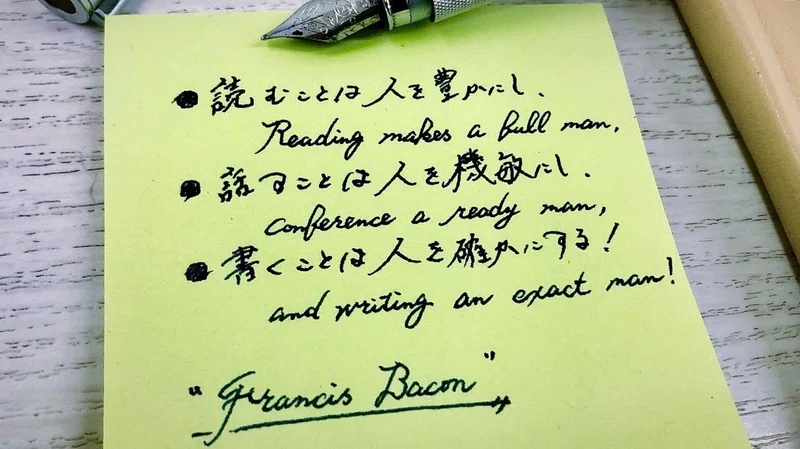 ● 読むことは人を豊かにし、
Reading makes a full man,
● 話すことは人を機敏にし、
conference a ready man,
● 書くことは人を確かにする!
and writing an exact man!
"Francis Bacon"